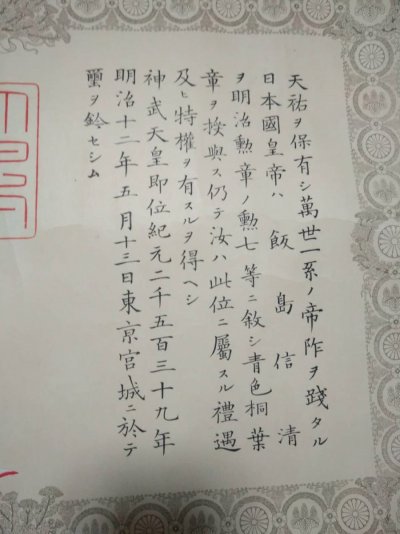 天祐ヲ保有シ萬世一系ノ帝阼ヲ踐タル
日本國皇帝ハ飯島信清
ヲ明治勲章ノ勲七等ニ敘シ青色桐葉
章ヲ授與ス仍テ汝ハ此位ニ屬スル禮遇
及ヒ特權ヲ有スルヲ得ヘシ
神武天皇即位紀元二千五百三十九年
明治十二年五月十三日東京宮城ニ於テ
璽ヲ鈐セシム